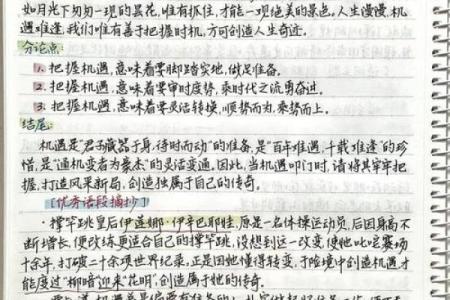 如月光下匆匆一现的昙花,唯有抓住,才能一现绝美的景色。人生漫漫,机
遇难逢,我们唯有善于把握时机,方可创造人生奇迹。
分论点
1. 把握机遇,意味着要脚踏实地,做足准备。
2. 把握机遇,意味着要审时度势,乘时代之流勇奋进。
3. 把握机遇,意味着要灵活转换,顺势而为,乘势而上。
结尾:
机遇是“君子藏器于身,待时而动”的准备,是“百年难遇,千载难逢”的珍
惜,是“通机变者为豪杰”的灵活变通。因此,当机遇叩门时,请将其牢牢把
握,打造风采新局,创造独属于自己的传奇。
[优秀语段摘抄]
·撑竿跳皇后伊莲娜·伊辛巴耶娃,原是一名体操运动员,后因身高不
断增长,便改练更适合自己的撑竿跳,没想到这一改变使她叱咤赛场
十余年,打破二十余项世界纪录,正是因她懂得转变,于险境中创造机遇,才
能度过“柳暗迎来“花明”,创造属于她的传奇。